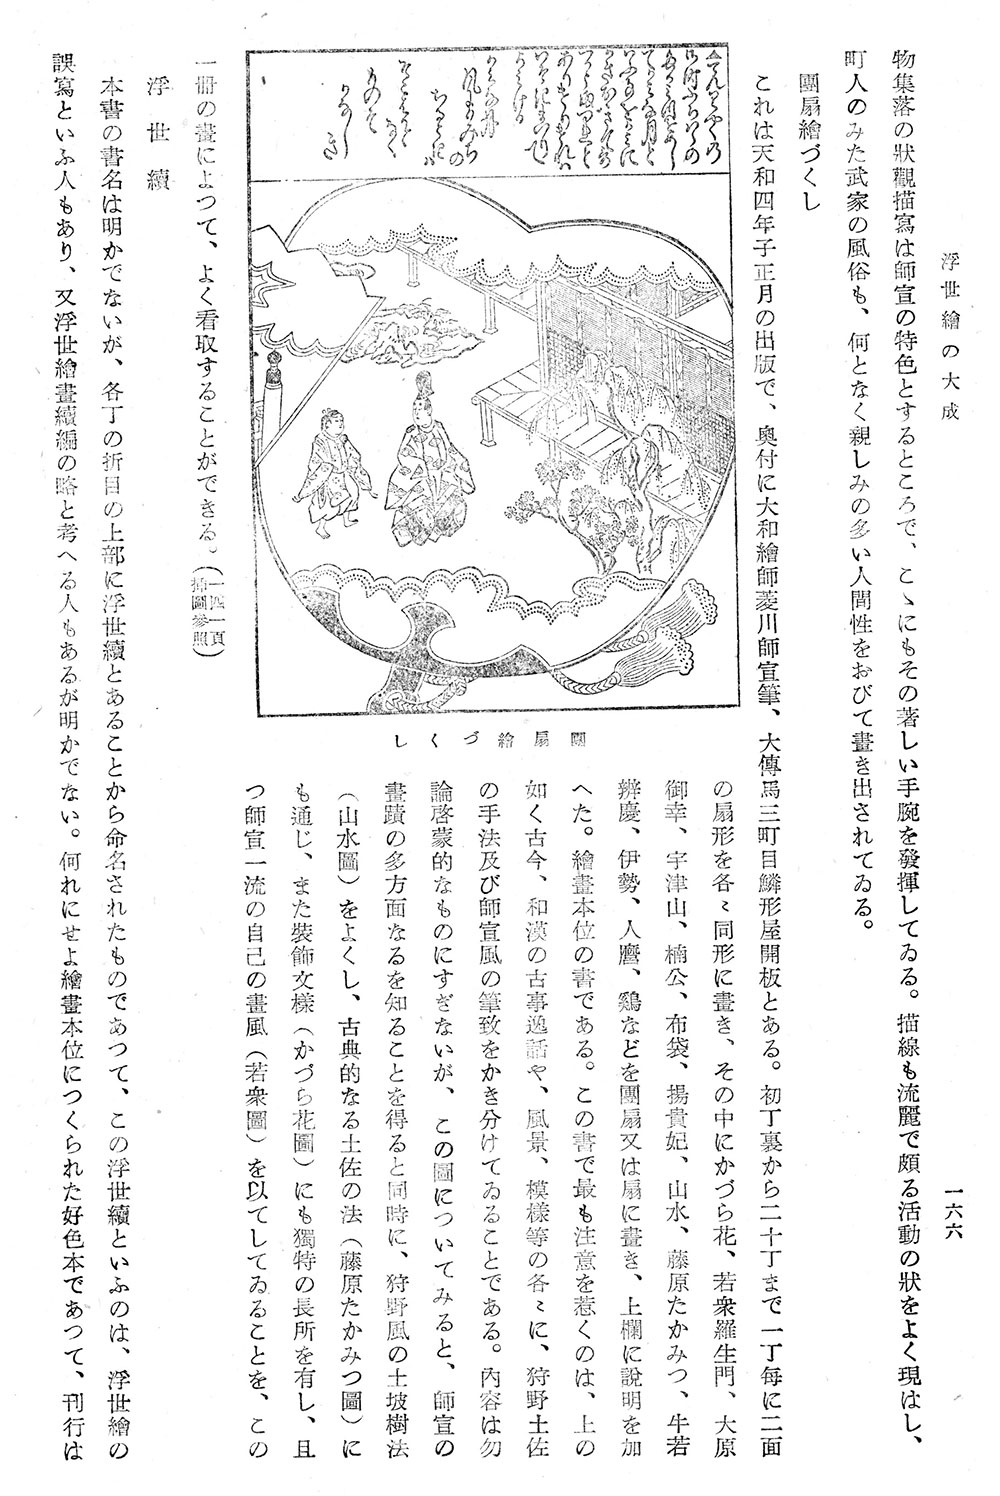 浮世繪の大成
一六六
物集落の狀觀描寫は師宣の特色とするところで、こゝにもその著しい手腕を發揮してゐる。描線も流麗で頗る活動の狀をよく現はし、
町人のみた武家の風俗も、何となく親しみの多い人間性をおびて畫き出されてゐる。
團扇繪づくし
これは天和四年子正月の出版で、奧付に大和繪師菱川師宣筆、大傳馬三町目鱗形屋開板とある。初丁裏から二十丁まで一丁每に二面
の扇形を各〻同形に畫き、その中にかづら花、若衆羅生門、大原
御幸、宇津山、楠公、布袋、揚貴妃、山水、藤原たかみつ、牛若
辨慶、伊勢、人麿、鷄などを團扇又は扇に畫き、上欄に說明を加
へた。繪畫本位の書である。この書で最も注意を惹くのは、上の
如く古今、和漢の古事逸話や、風景、模樣等の各〻に、狩野土佐
の手法及び師宣風の筆致をかき分けてゐることである。內容は勿
論啓蒙的なものにすぎないが、この圖についてみると、師宣の
畫蹟の多方面なるを知ることを得ると同時に、狩野風の土坡樹法
（山水圖）をよくし、古典的なる土佐の法（藤原たかみつ圖）に
も通じ、また裝飾文樣（かづら花圖）にも獨特の長所を有し、且
つ師宣一流の自己の畫風（若衆圖）を以てしてゐることを、この
團扇繪づくし
一冊の畫によつて、よく看取することができる。（一四一頁
插圖參照）
浮世續
本書の書名は明かでないが、各丁の折目の上部に浮世續とあることから命名されたものであつて、この浮世續といふのは、浮世繪の
誤寫といふ人もあり、又浮世繪畫續編の略と考へる人もあるが明かでない。何れにせよ繪畫本位につくられた好色本であつて、刊行は